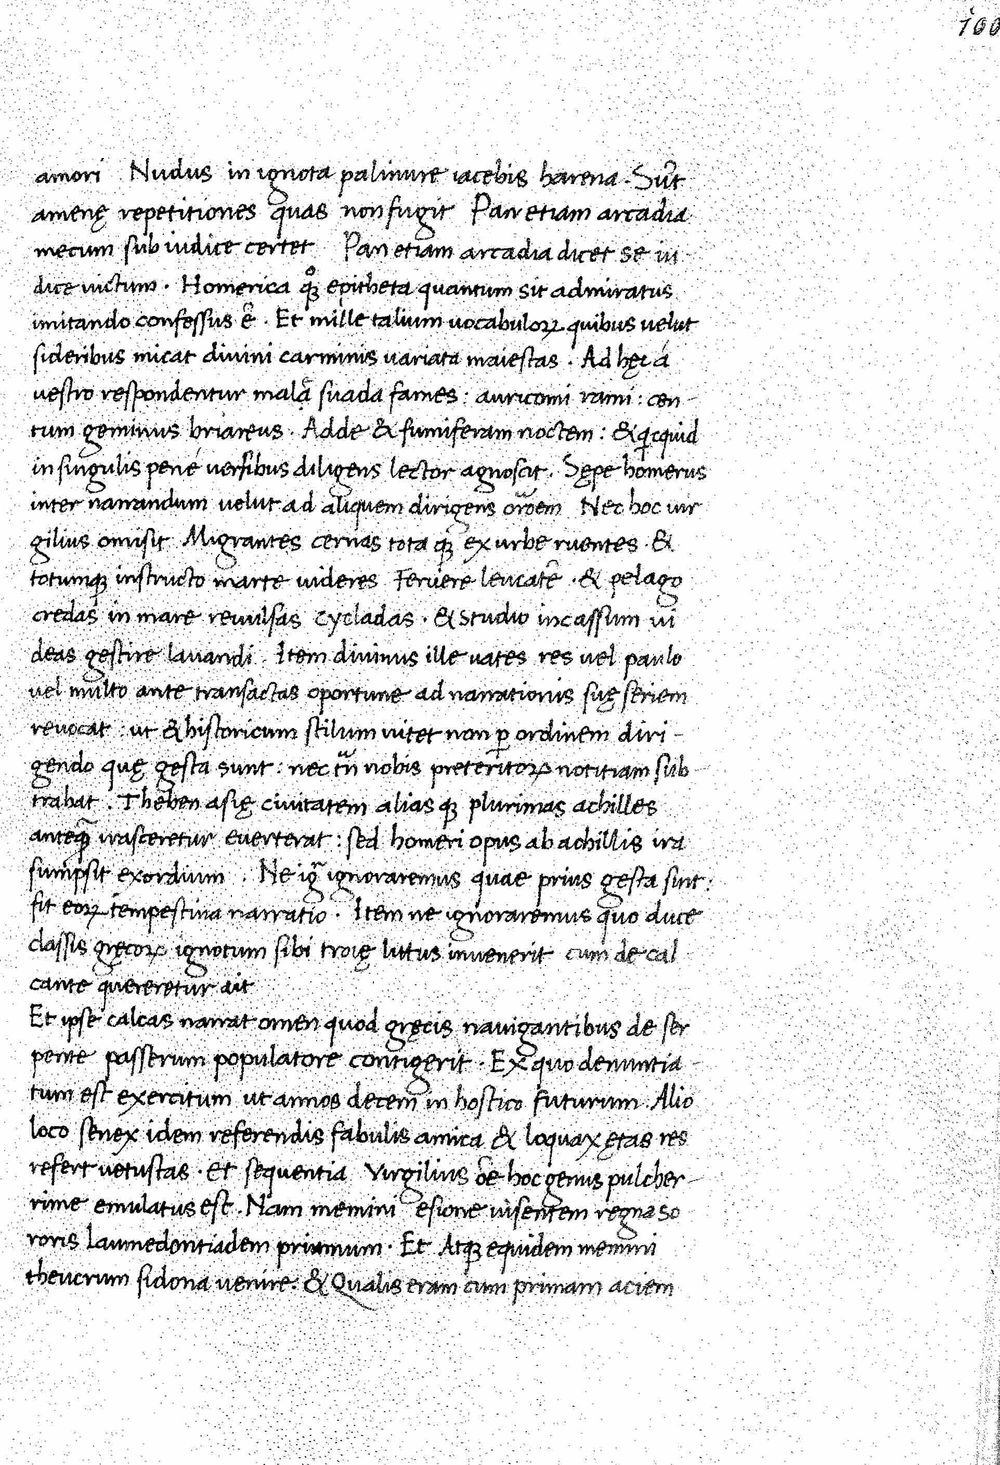 100
amori Nudus in ignota palinure iacebis harena. Sūt
amenę repetitiones quas non fugit Pan etiam arcadia
mecum sub iudice certet Pan etiam arcadia dicet se iu
dice uictum. Homerica qꝫ epitheta quantum sit admiratus
imitando confessus ē. Et mille talium uocabuloꝝ quibus uelut
sideribus micat diuini carminis uariata maiestas. Ad hęc a
uestro respondentur mala suada fames: auricomi rami: cen-
tum geminus briareus. Adde & fumiferam noctem: & qicquid
in singulis pene uersibus diligens lector agnoscit. Sępe homerus
inter narrandum uelut ad aliquem dirigens oroēm Nec hoc uir
gilius omisit Migrantes cernas tota qꝫ ex urbe ruentes. &
totumqꝫ instructo marte uideres Feruere leucatē. & pelago
credas in mare reuulsas cycladas. & studio incassum ui
deas gestire lauandi. Item diuinus ille uates res uel paulo
uel multo ante transactas oportune ad narrationis suę seriem
reuocat: ut & historicum stilum uitet non ꝑ ordinem diri-
gendo quę gesta sunt: nec tn̄ nobis preteritoꝝ notitiam sub
trahat. Theben asię ciuitatem alias qꝫ plurimas achilles
anteqꝫ irasceretur euerterat: sed homeri opus ab achillis ira
sumpsit exordium. Ne igr̄ ignoraremus quae prius gesta sint:
fit eoꝝ tempestiua narratio. Item ne ignoraremus quo duce
classis gręcoꝝ ignotum sibi troię littus inuenerit cum de cal
cante quereretur ait
Et ipse calcas narrat omen quod gręcis nauigantibus de ser
pente passerum populatore contigerit. Ex quo denuntia
tum est exercitum ut annos decem in hostico futurum. Alio
loco senex idem referendis fabulis amica & loquax ętas res
refert uetustas. Et sequentia Virgilius oē hoc genus pulcher-
rime emulatus est. Nam memini esione uisentem regna so
roris Laumedontiadem priamum. Et Atqꝫ equidem memini
theucrum sidona uenire: & Qualis eram cum primam aciem